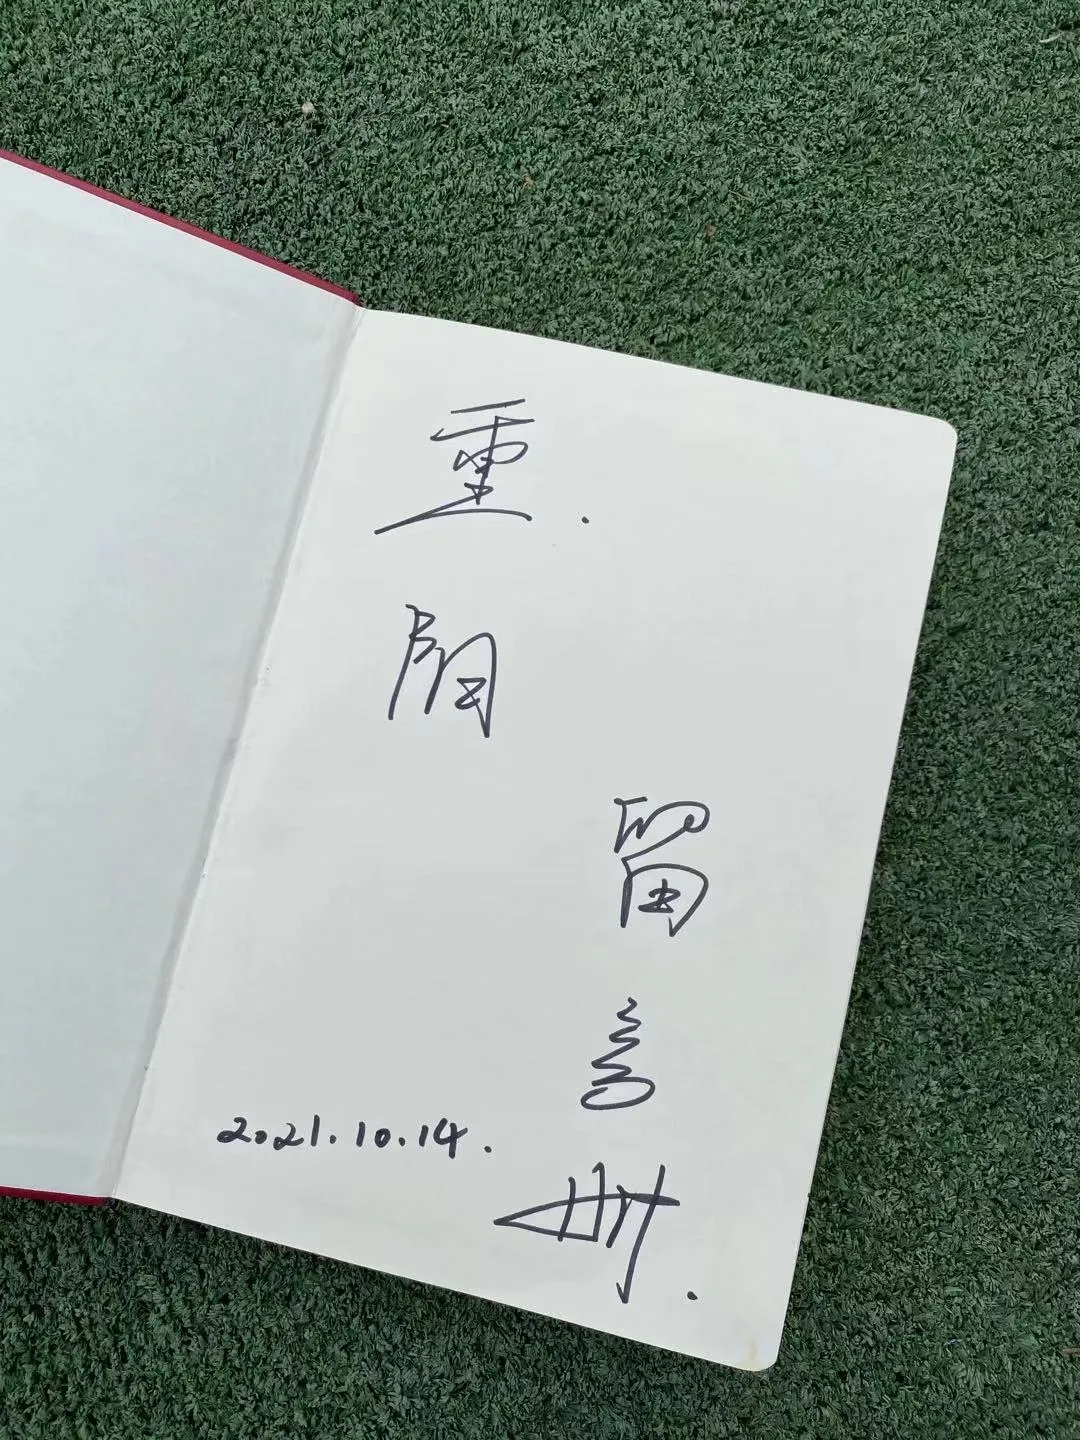 重.
阳
留
言
册.
2021.10.14.